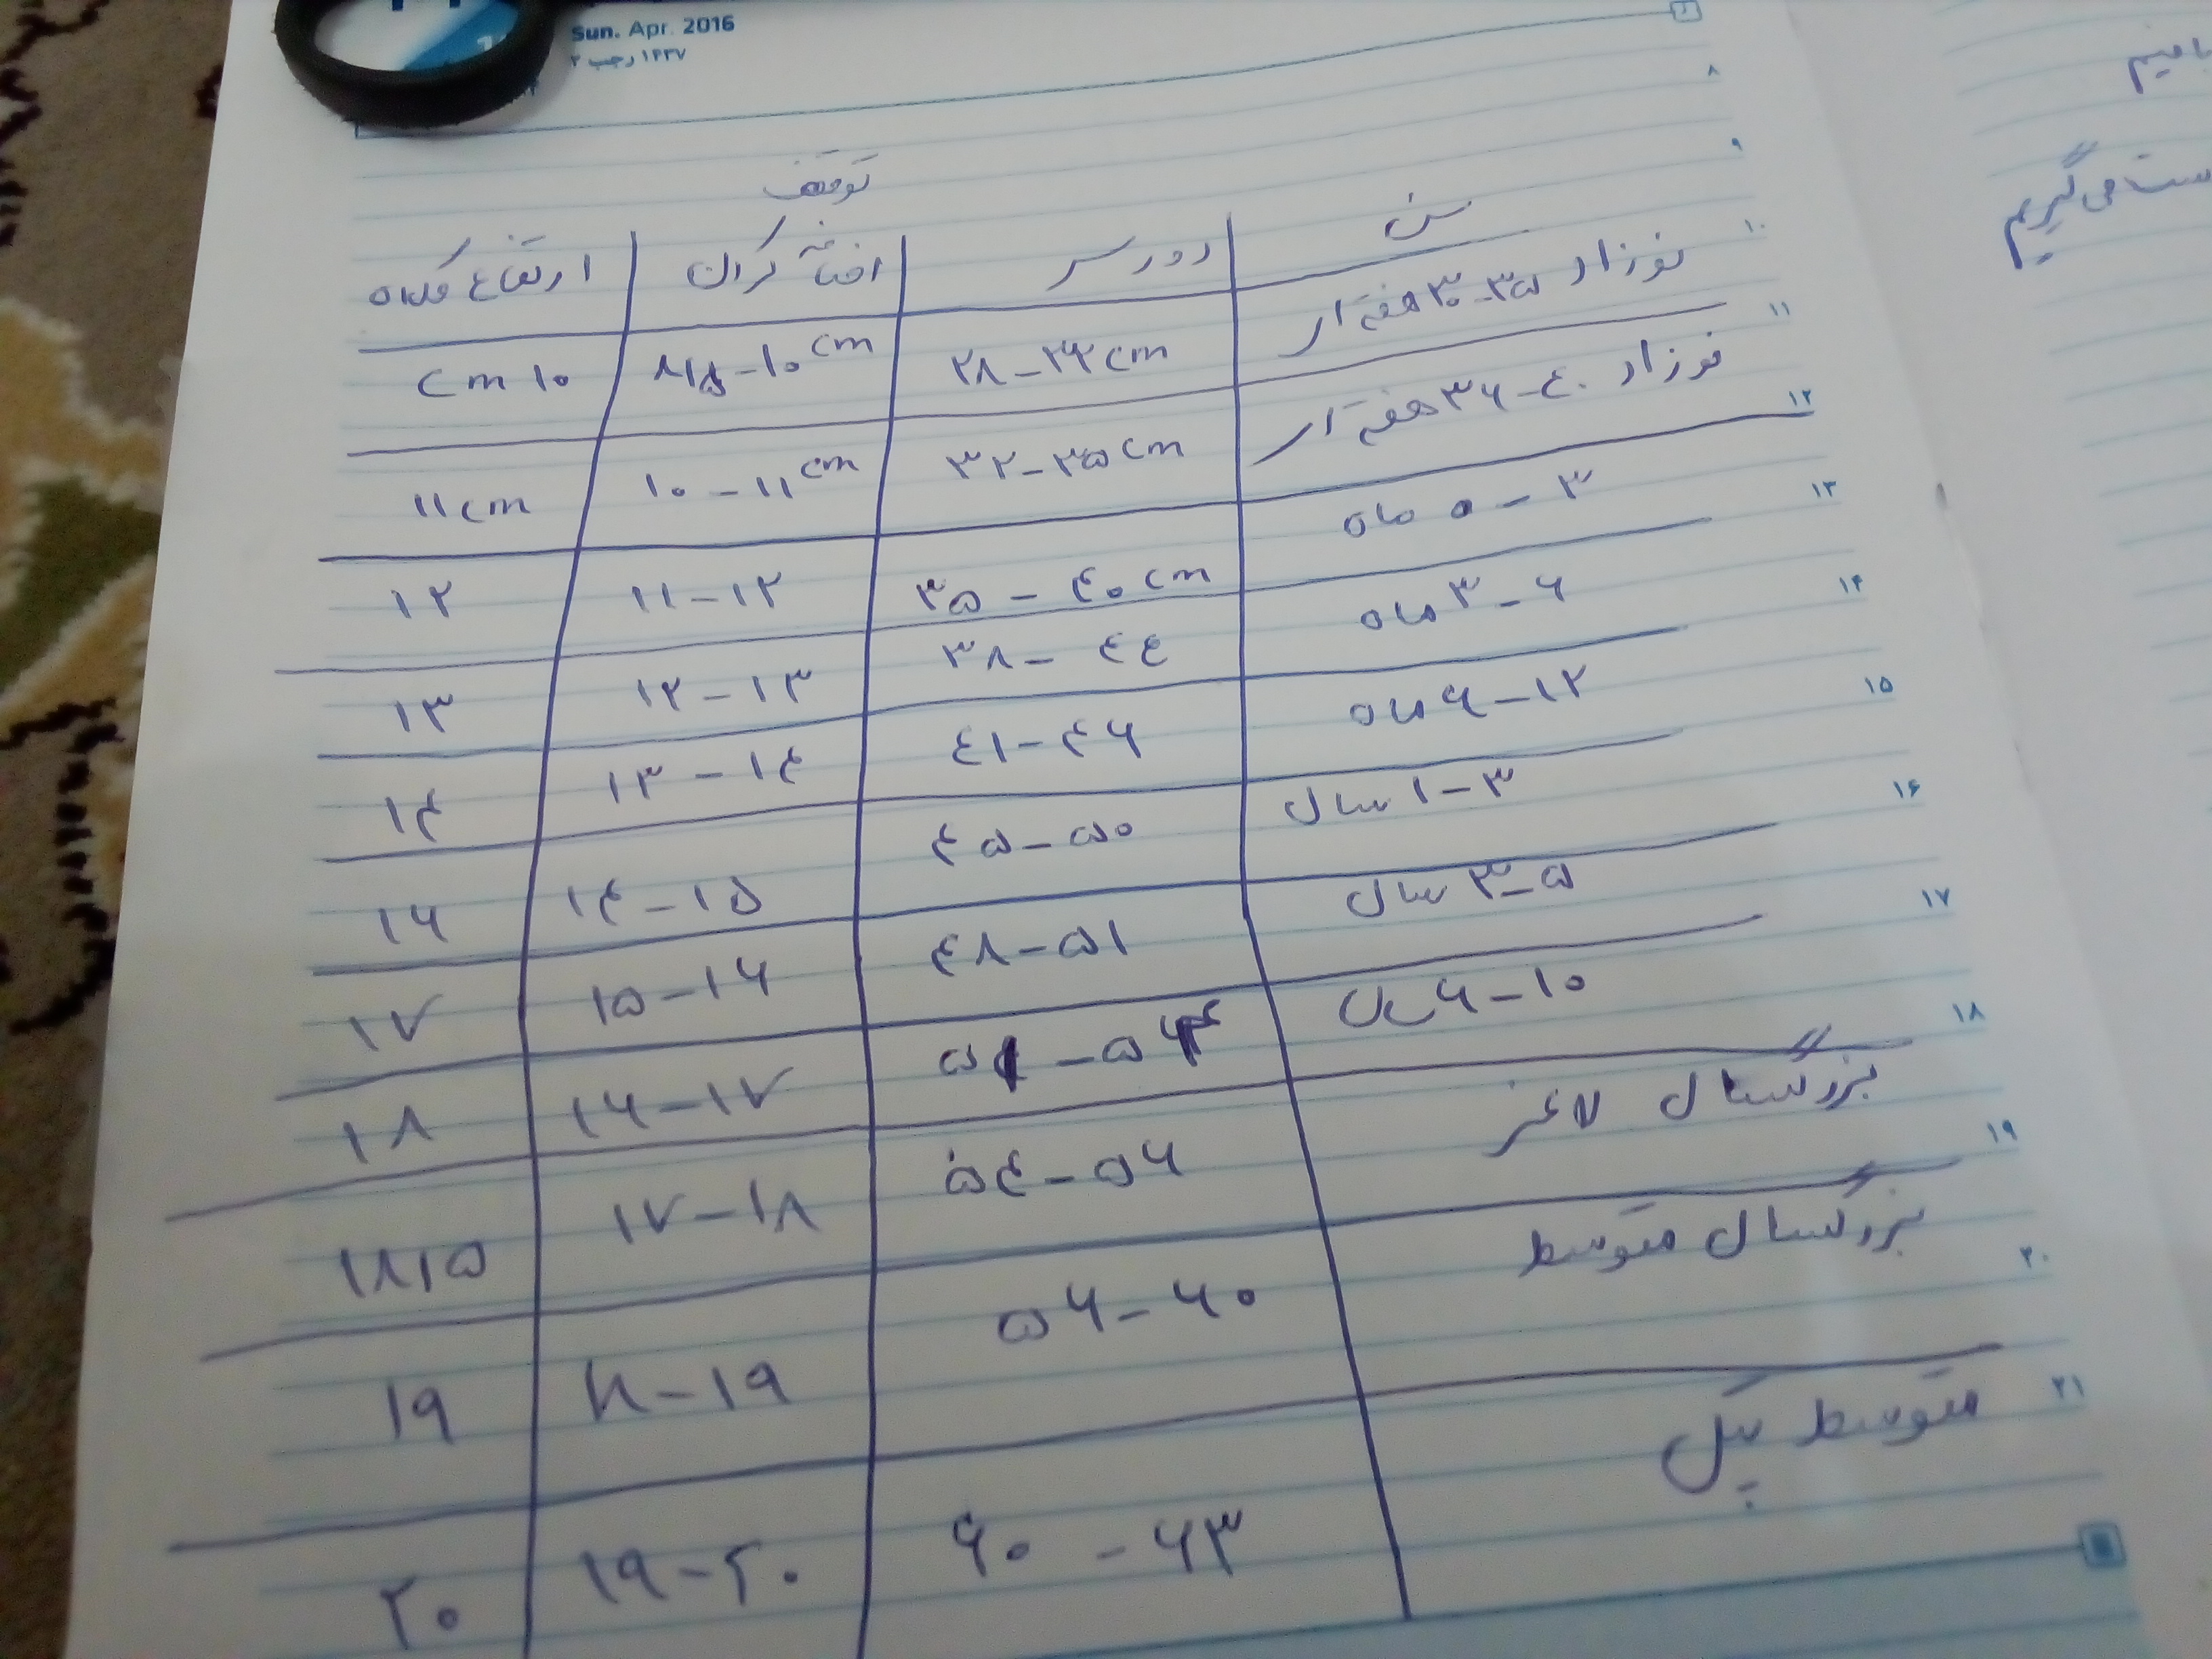 Sun. Apr. 2016
۱۴۳۷ رجب ۲
۸
۹
توقف
سن | دور سر | اضافه کردن | ارتفاع کلاه
۱۰
نوزاد ۳۵-۳۰ هفته‌ای | ۲۸-۳۲ cm | ۸/۵-۱۰ cm | ۱۰ cm
۱۱
نوزاد ۴۰-۳۶ هفته‌ای | ۳۲-۳۵ cm | ۱۰-۱۱ cm | ۱۱ cm
۱۲
۳-۰ ماه | ۳۵-۴۰ cm | ۱۱-۱۲ | ۱۲
۱۳
۶-۳ ماه | ۳۸-۴۴ | ۱۲-۱۳ | ۱۳
۱۴
۱۲-۶ ماه | ۴۱-۴۶ | ۱۳-۱۴ | ۱۴
۱۵
۳-۱ سال | ۴۵-۵۰ | ۱۴-۱۵ | ۱۶
۱۶
۵-۳ سال | ۴۸-۵۱ | ۱۵-۱۶ | ۱۷
۱۷
۱۰-۶ سال | ۱۶-۱۷ | ۱۸
۱۸
بزرگسال لاغر | ۵۴-۵۶ | ۱۷-۱۸ | ۱۸/۵
۱۹
بزرگسال متوسط | ۵۶-۶۰ | ۱۸-۱۹ | ۱۹
۲۰
۲۱
متوسط | ۶۰-۶۳ | ۱۹-۲۰ | ۲۰
می‌گیریم